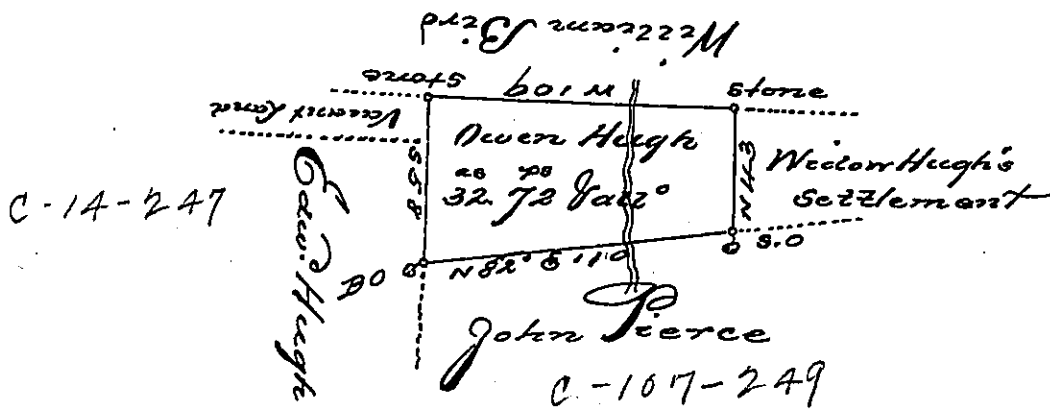 William Bird
Stone
W 109
Stone
Vacant Land
Owen Hugh
S 58
as ps
32. 72
N 43
Widow Hugh's
Settlement
C-14-247
Edw. Hugh
BO
N82° E 110
SO
John Pierce
C-107-249